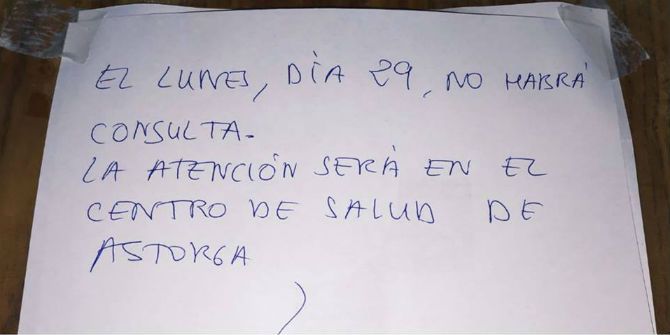 EL LUNES, DÍA 29, NO HABRÁ
CONSULTA.
LA ATENCIÓN SERÁ EN EL
CENTRO DE SALUD DE
ASTORGA